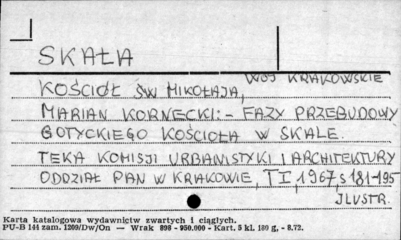 SKAŁA
WOJ KRAKOWSKIE
KOŚCIÓŁ ŚW MIKOŁAJA,
MARIAN KORNECKI: - FAZY PRZEBUDOWY
GOTYCKIEGO KOŚCIOŁA W SKALE.
TEKA KOMISJI URBANISTYKI I ARCHITEKTURY
ODDZIAŁ PAN W KRAKOWIE, T I, 1967, s 181-195
JLUSTR.
Karta katalogowa wydawnictw zwartych i ciągłych.
PU-B 144 zam. 1209/Dw/On — Wrak 898 - 950.000 - Kart. 5 kl. 180 g, - 8.72.